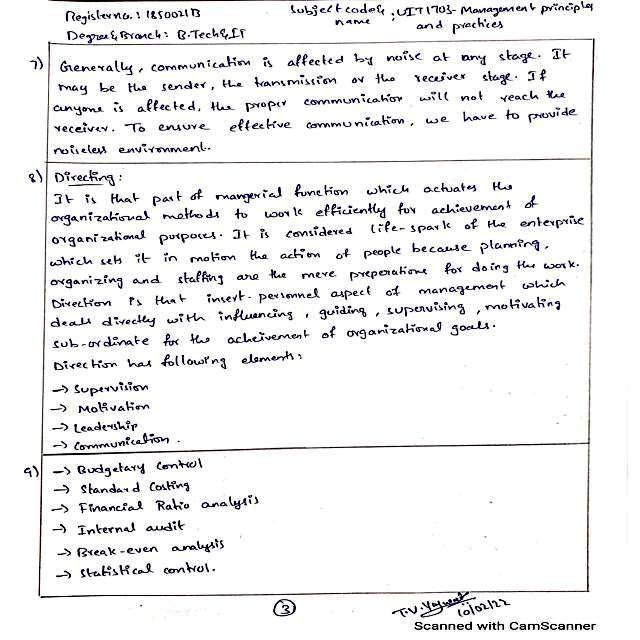 Register no. : 185002113
Subject code & name : UIT1703- Management principles and practices
Degree & Branch : B.Tech & IT
7) Generally, communication is affected by noise at any stage. It
may be the sender, the transmission or the receiver stage. If
anyone is affected, the proper communication will not reach the
receiver. To ensure effective communication, we have to provide
noiseless environment.
8) Directing :
It is that part of mangerial function which actuates the
organizational methods to work efficiently for achievement of
organizational purposes. It is considered life-spark of the enterprise
which sets it in motion the action of people because planning,
organizing and staffing are the mere preparations for doing the work.
Direction is that insert-personnel aspect of management which
deals directly with influencing, guiding, supervising, motivating
sub-ordinate for the acheivement of organizational goals.
Direction has following elements :
→ Supervision
→ Motivation
→ Leadership
→ Communication.
9) → Budgetary control
→ Standard Costing
→ Financial Ratio analysis
→ Internal audit
→ Break-even analysis
→ Statistical control.
3
T.V.
10/02/22
Scanned with CamScanner